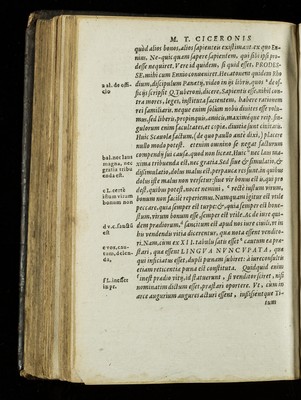 M. T. CICERONIS
quòd alios bonos, alios sapienteis existimat: ex quo En-
nius. Ne quicquam sapere sapientem, qui sibi ipsi pro-
desse nequiret. Vere id quidem, si quid esset, PRODES-
SE, mihi cum Ennio conueniret. Hecatonem quidem Rho
dium, discipulum Panetij, video in ijs libris, quos de of-
ficijs scripsit Q. Tuberoni, dicere, Sapientis esse, nihil con
tra mores, leges, instituta facientem, habere rationem
rei familiaris. neque enim solum nobis diuites esse volu-
mus, sed liberis, propinquis, amicis, maximéque reip. sin-
gulorum enim facultates, et copiæ, diuitiæ sunt ciuitatis.
Huic Scæuolæ factum, (de quo paullo antè dixi,) placere
nullo modo potest. etenim omnino se negat facturum
compendij sui causa, quod non liceat. Huic nec laus ma
xima tribuenda est, nec gratia. Sed siue & simulatio, &
dissimulatio, dolus malus est, perpaucæ res sunt, in quibus
dolus iste malus non versetur: siue vir bonus est is, qui pro
dest, quibus potest, nocet nemini, recte iustum virum,
bonum non facile reperiemus. Numquam igitur est vtile
peccare, quia semper est turpe: & quia semper est hone-
stum, virum bonum esse, semper est vtile. Ac de iure qui-
dem prædiorum, sanctitum est apud nos iure ciuili, vt in
his vendendis vitia dicerentur, quæ nota essent vendito-
ri. Nam, cum ex XII. tabulis satis esset cautum ea præ-
stari, quæ essent LINGVA NVNCVPATA, quæ
qui inficiatus esset, dupli pœnam subiret: à iurecosultis
etiam reticentiæ pœna est constituta. Quidquid enim
inest prædio vitij, id statuerunt, si venditor sciret, nisi
nominatim dictum esset, præstari oportere. Vt, cum in
arce augurium augures acturi essent, iussissent que Ti-
tum
a al. de offi-
cio
b al. nec laus
magna, nec
gratia tribu
enda est.
c L. certè
istum virum
bonum non
d v.c. sancitū
est
f L. inesset
in pr.